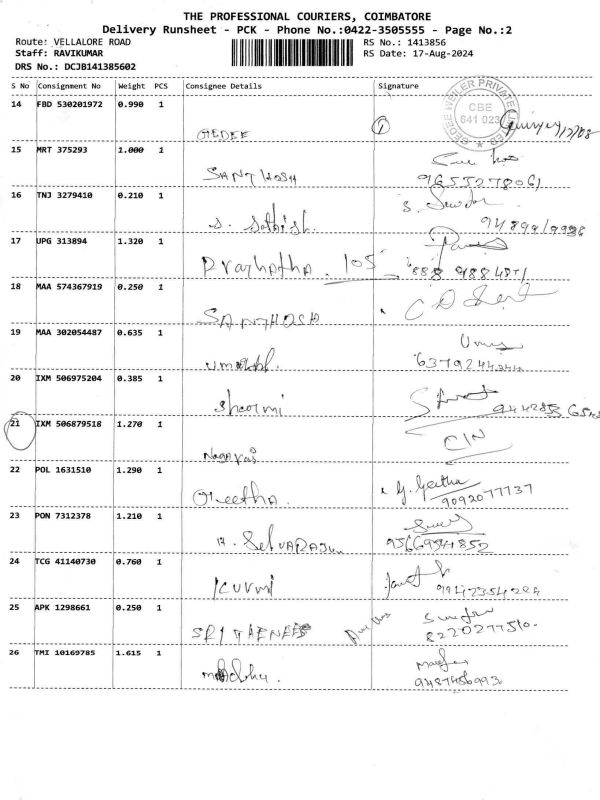 THE PROFESSIONAL COURIERS, COIMBATORE
Delivery Runsheet - PCK - Phone No.:0422-3505555 - Page No.:2
Route: VELLALORE ROAD
Staff: RAVIKUMAR
DRS No.: DCJB141385602
RS No.: 1413856
RS Date: 17-Aug-2024
S No Consignment No Weight PCS Consignee Details Signature
14 FBD 530201972 0.990 1
GEDEE WEILER PRIVATE LIMITED
CBE
641 023
GEDEE
15 MRT 375293 1.000 1
SANTHOSH 9655278061
16 TNJ 3279410 0.210 1
S. Sathish.
17 UPG 313894 1.320 1
Prarhatha. 105
18 MAA 574367919 0.250 1
SANTHOSH
19 MAA 302054487 0.635 1
20 IXM 506975204 0.385 1
Sharmi
21 IXM 506879518 1.270 1
CIN
Nagaraj
22 POL 1631510 1.290 1
Geetha. G. Geetha
9092077737
23 PON 7312378 1.210 1
SelVARAJ 9566954852
24 TCG 41140730 0.760 1
25 APK 1298661 0.250 1
8220277510.
26 TMI 10169785 1.615 1
9487456993